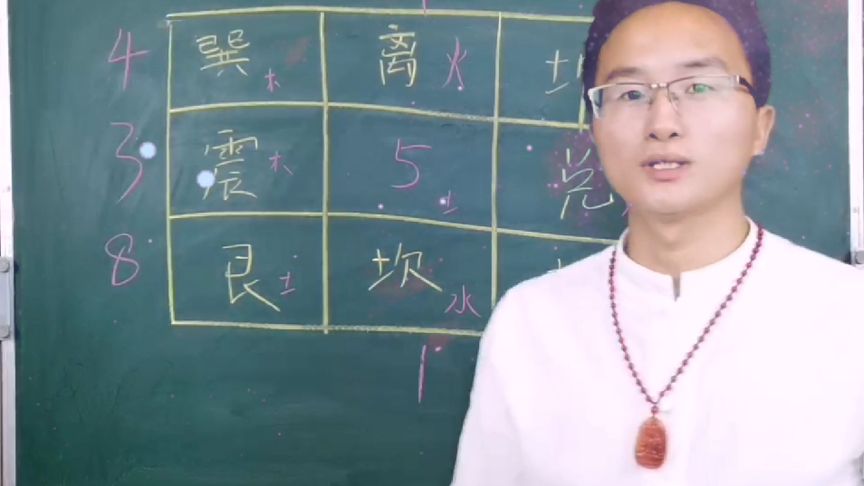 4 巽 木 离 火
3 震 木 5 土 兑
8 艮 土 坎 水
1